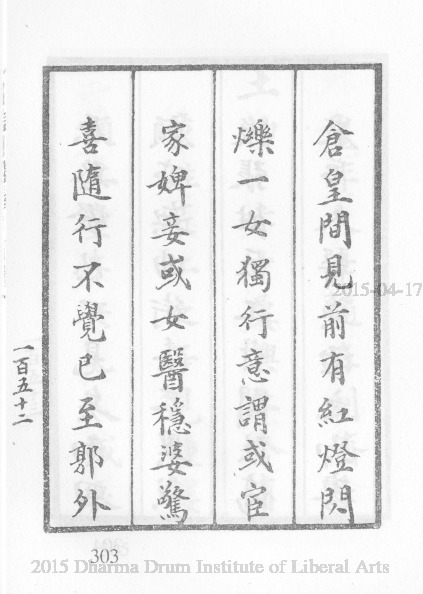 倉皇間見前有紅燈閃
爍一女獨行意謂或宦
家婢妾或女醫穩婆驚
喜隨行不覺已至郭外
一百五十二
303
2015-04-17
2015 Dharma Drum Institute of Liberal Arts